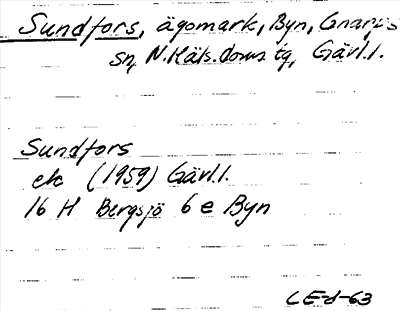 Sundfors, ägomark, Byn, Gnarps
sn, N.Häls.doms tg, Gävl.l.
Sundfors
ek (1959) Gävl.l.
16 H Bergsjö 6 e Byn
LE-d-63